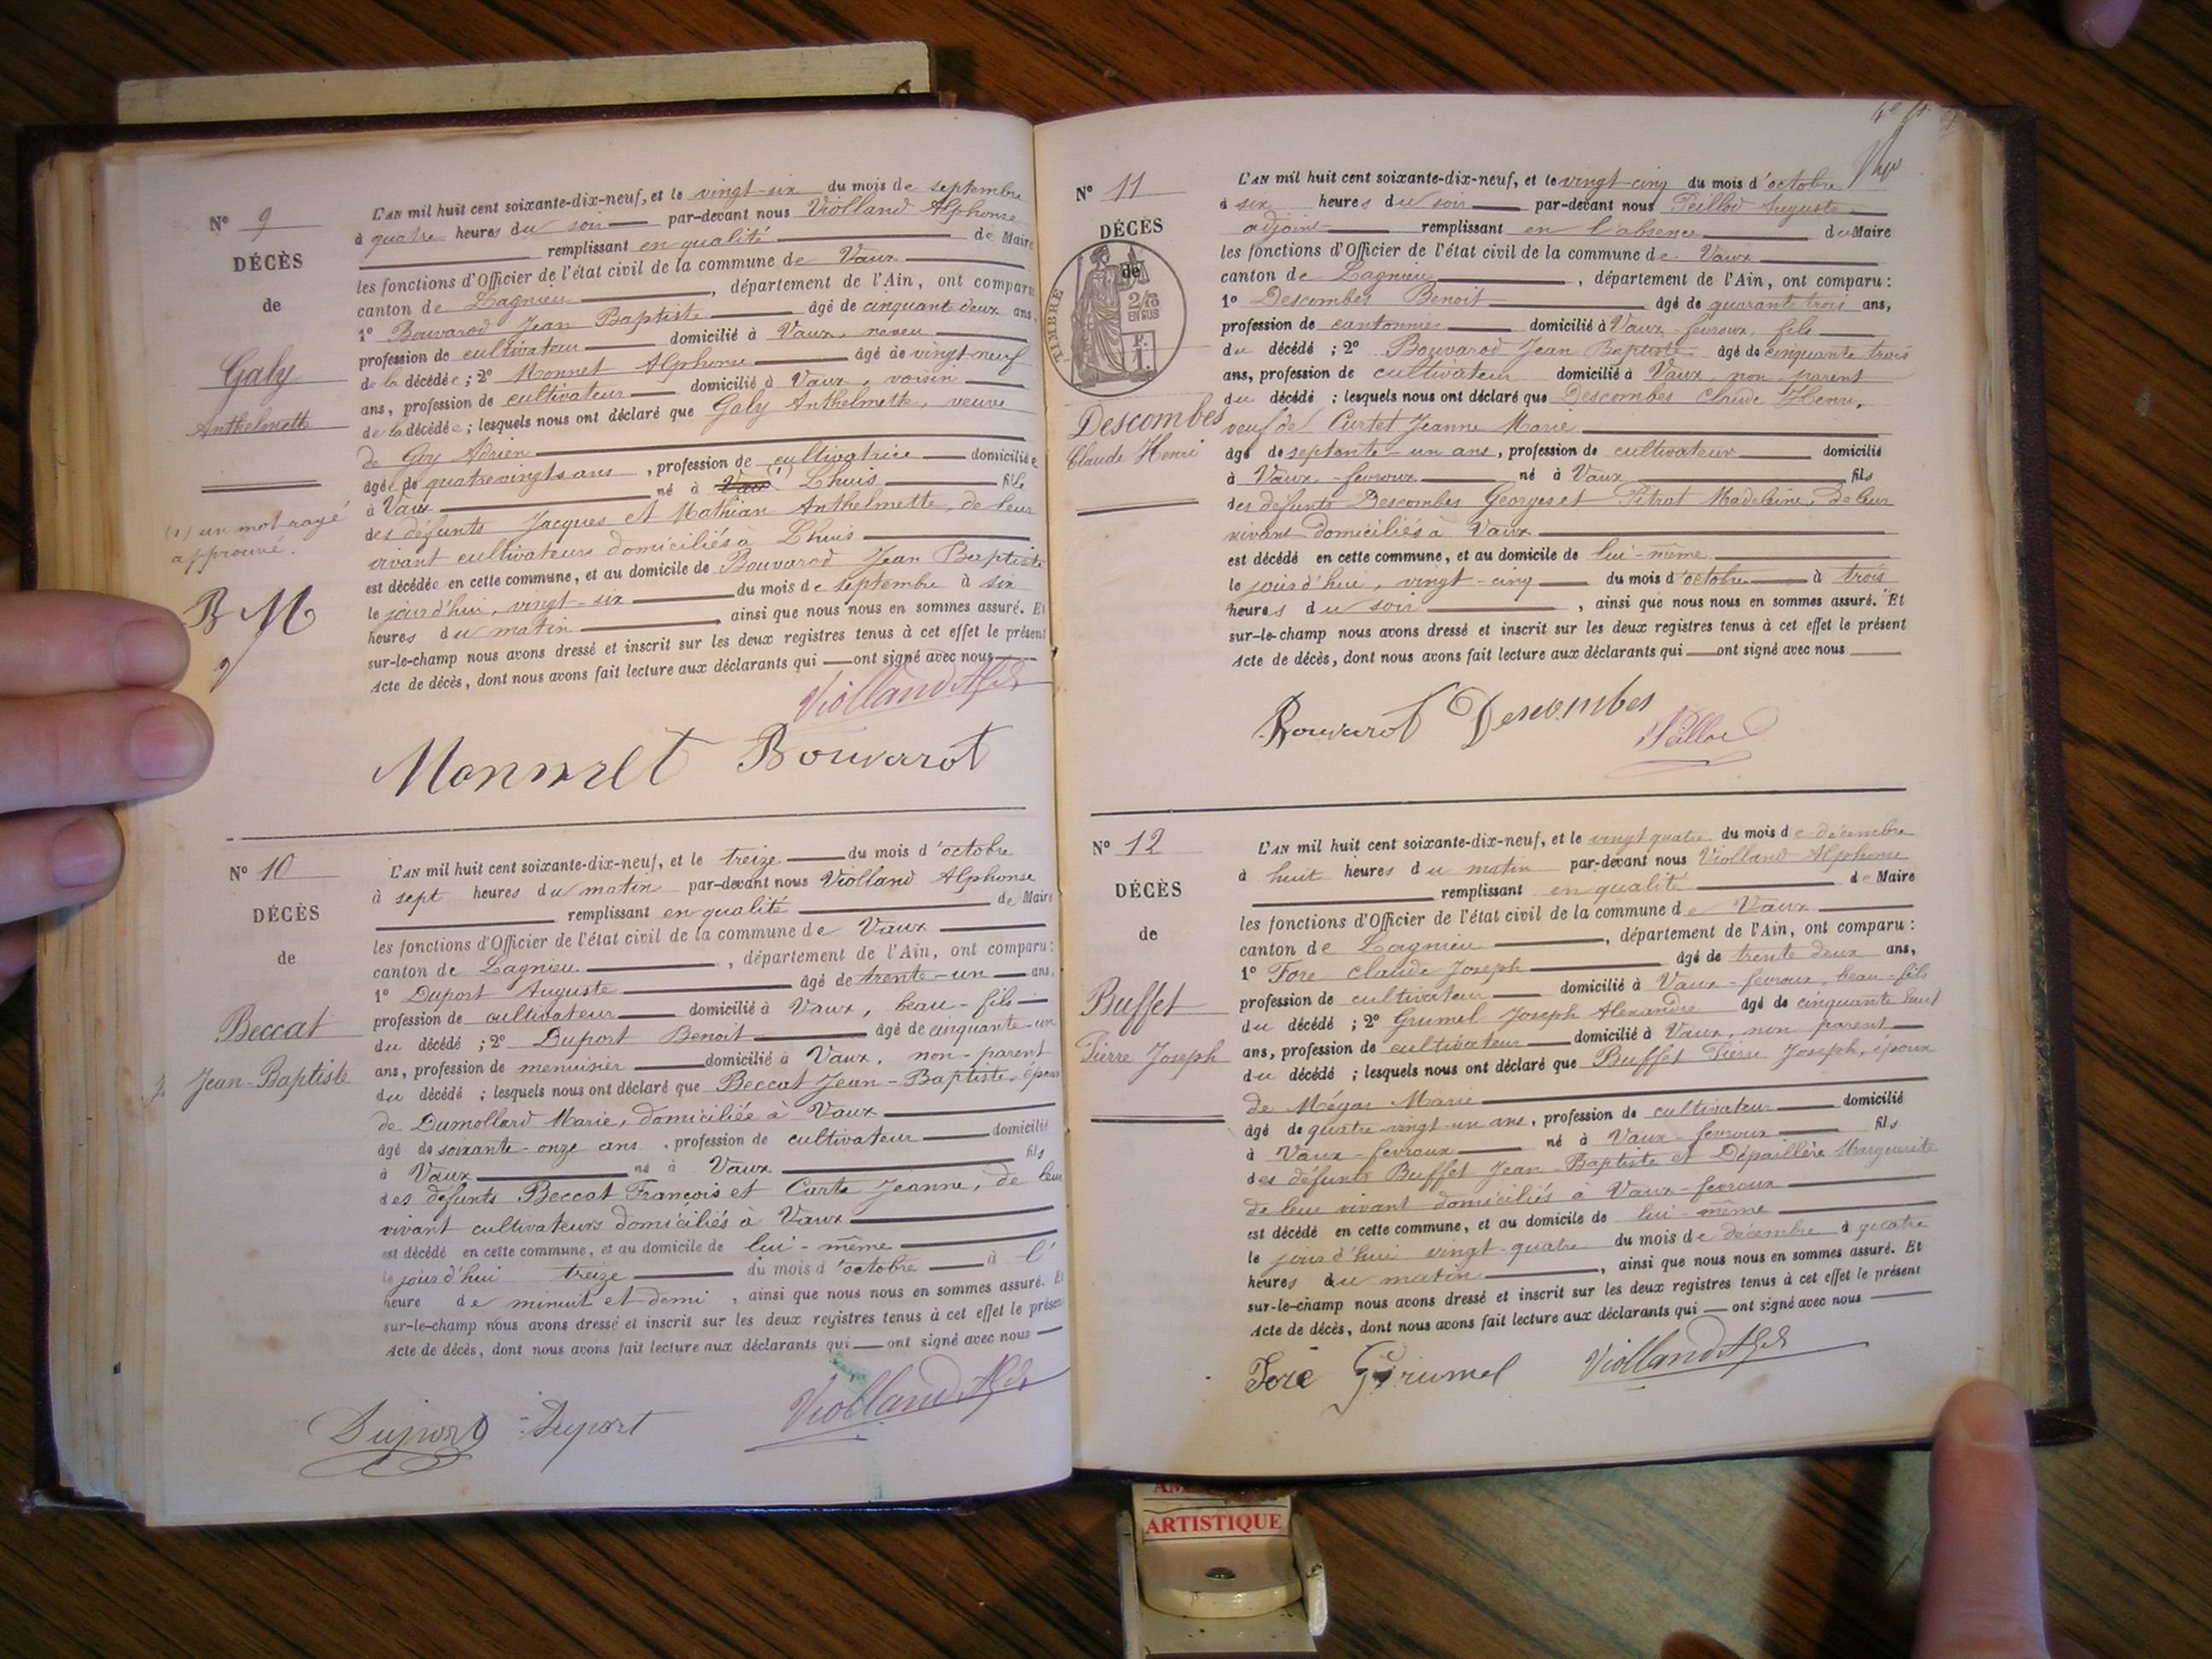 N° 9
DÉCÈS
de
Galy
Anthelmette
(1) un mot rayé
approuvé.
B M
L'AN mil huit cent soixante-dix-neuf, et le vingt-six du mois de septembre
à quatre heures du soir par-devant nous Violland Alphonse
remplissant en qualité de Maire
les fonctions d'Officier de l'état civil de la commune de Vaux
canton de Lagnieu, département de l'Ain, ont comparu
1° Bouvarod Jean Baptiste âgé de cinquante deux ans.
profession de cultivateur domicilié à Vaux, neveu
de la décédée; 2° Monnet Alphonse âgé de vingt-neuf
ans, profession de cultivateur domicilié à Vaux, voisin
de la décédée; lesquels nous ont déclaré que Galy Anthelmette, veuve
de Goy Adrien
âgée de quatrevingts ans, profession de cultivatrice domiciliée
à Vaux né à Vaux (1) Lhuis fille
des défunts Jacques et Mathian Anthelmette, de leur
vivant cultivateurs domiciliés à Lhuis
est décédée en cette commune, et au domicile de Bouvarod Jean Baptiste
le jourd'hui, vingt-six du mois de septembre à six
heures du matin, ainsi que nous nous en sommes assuré. Et
sur-le-champ nous avons dressé et inscrit sur les deux registres tenus à cet effet le présent
Acte de décès, dont nous avons fait lecture aux déclarants qui ont signé avec nous
Violland Alph
Monnet Bouvarot
N° 10
DÉCÈS
de
Beccat
Jean-Baptiste
L'AN mil huit cent soixante-dix-neuf, et le treize du mois d'octobre
à sept heures du matin par-devant nous Violland Alphonse
remplissant en qualité de Maire
les fonctions d'Officier de l'état civil de la commune de Vaux
canton de Lagnieu, département de l'Ain, ont comparu:
1° Duport Auguste âgé de trente-un ans,
profession de cultivateur domicilié à Vaux, beau-fils
du décédé; 2° Duport Benoit âgé de cinquante-un
ans, profession de menuisier domicilié à Vaux, non-parent
du décédé; lesquels nous ont déclaré que Beccat Jean-Baptiste, époux
de Dumollard Marie, domiciliée à Vaux
âgé de soixante-onze ans, profession de cultivateur domicilié
à Vaux né à Vaux fils
des défunts Beccat François et Curta Jeanne, de leur
vivant cultivateurs domiciliés à Vaux
est décédé en cette commune, et au domicile de lui-même
le jourd'hui treize du mois d'octobre à l'
heure de minuit et demi, ainsi que nous nous en sommes assuré. Et
sur-le-champ nous avons dressé et inscrit sur les deux registres tenus à cet effet le présent
Acte de décès, dont nous avons fait lecture aux déclarants qui ont signé avec nous
Duport Duport Violland Alph
N° 11
DÉCÈS
de
TIMBRE
2/10
EN SUS
F.
1.
Descombes
Claude Henri
L'AN mil huit cent soixante-dix-neuf, et le vingt-cinq du mois d'octobre
à six heures du soir par-devant nous Peillod Auguste
adjoint remplissant en l'absence du Maire
les fonctions d'Officier de l'état civil de la commune de Vaux
canton de Lagnieu, département de l'Ain, ont comparu:
1° Descombes Benoit âgé de quarant trois ans,
profession de cantonnier domicilié à Vaux-fevroux, fils
du décédé; 2° Bouvarod Jean Baptiste âgé de cinquante trois
ans, profession de cultivateur domicilié à Vaux, non parent
du décédé; lesquels nous ont déclaré que Descombes Claude Henri,
veuf de Curtet Jeanne Marie
âgé de septante-un ans, profession de cultivateur domicilié
à Vaux-fevroux né à Vaux fils
des défunts Descombes Georges et Pitrat Madeleine, de leur
vivant domiciliés à Vaux
est décédé en cette commune, et au domicile de lui-même
le jourd'hui, vingt-cinq du mois d'octobre à trois
heures du soir, ainsi que nous nous en sommes assuré. Et
sur-le-champ nous avons dressé et inscrit sur les deux registres tenus à cet effet le présent
Acte de décès, dont nous avons fait lecture aux déclarants qui ont signé avec nous
Bouvarot Descombes
Peillod
N° 12
DÉCÈS
de
Buffet
Pierre Joseph
L'AN mil huit cent soixante-dix-neuf, et le vingt quatre du mois de décembre
à huit heures du matin par-devant nous Violland Alphonse
remplissant en qualité de Maire
les fonctions d'Officier de l'état civil de la commune de Vaux
canton de Lagnieu, département de l'Ain, ont comparu:
1° Fore Claude Joseph âgé de trente deux ans,
profession de cultivateur domicilié à Vaux-fevroux, beau-fils
du décédé; 2° Grumel Joseph Alexandre âgé de cinquante huit
ans, profession de cultivateur domicilié à Vaux, non parent
du décédé; lesquels nous ont déclaré que Buffet Pierre Joseph, époux
de Mégas Marie
âgé de quatre-vingt-un ans, profession de cultivateur domicilié
à Vaux-fevroux né à Vaux-fevroux fils
des défunts Buffet Jean-Baptiste et Dépaillère Marguerite
de leur vivant domiciliés à Vaux-fevroux
est décédé en cette commune, et au domicile de lui-même
le jourd'hui vingt-quatre du mois de décembre à quatre
heures du matin, ainsi que nous nous en sommes assuré. Et
sur-le-champ nous avons dressé et inscrit sur les deux registres tenus à cet effet le présent
Acte de décès, dont nous avons fait lecture aux déclarants qui ont signé avec nous
Fore Grumel Violland Alph
ARTISTIQUE